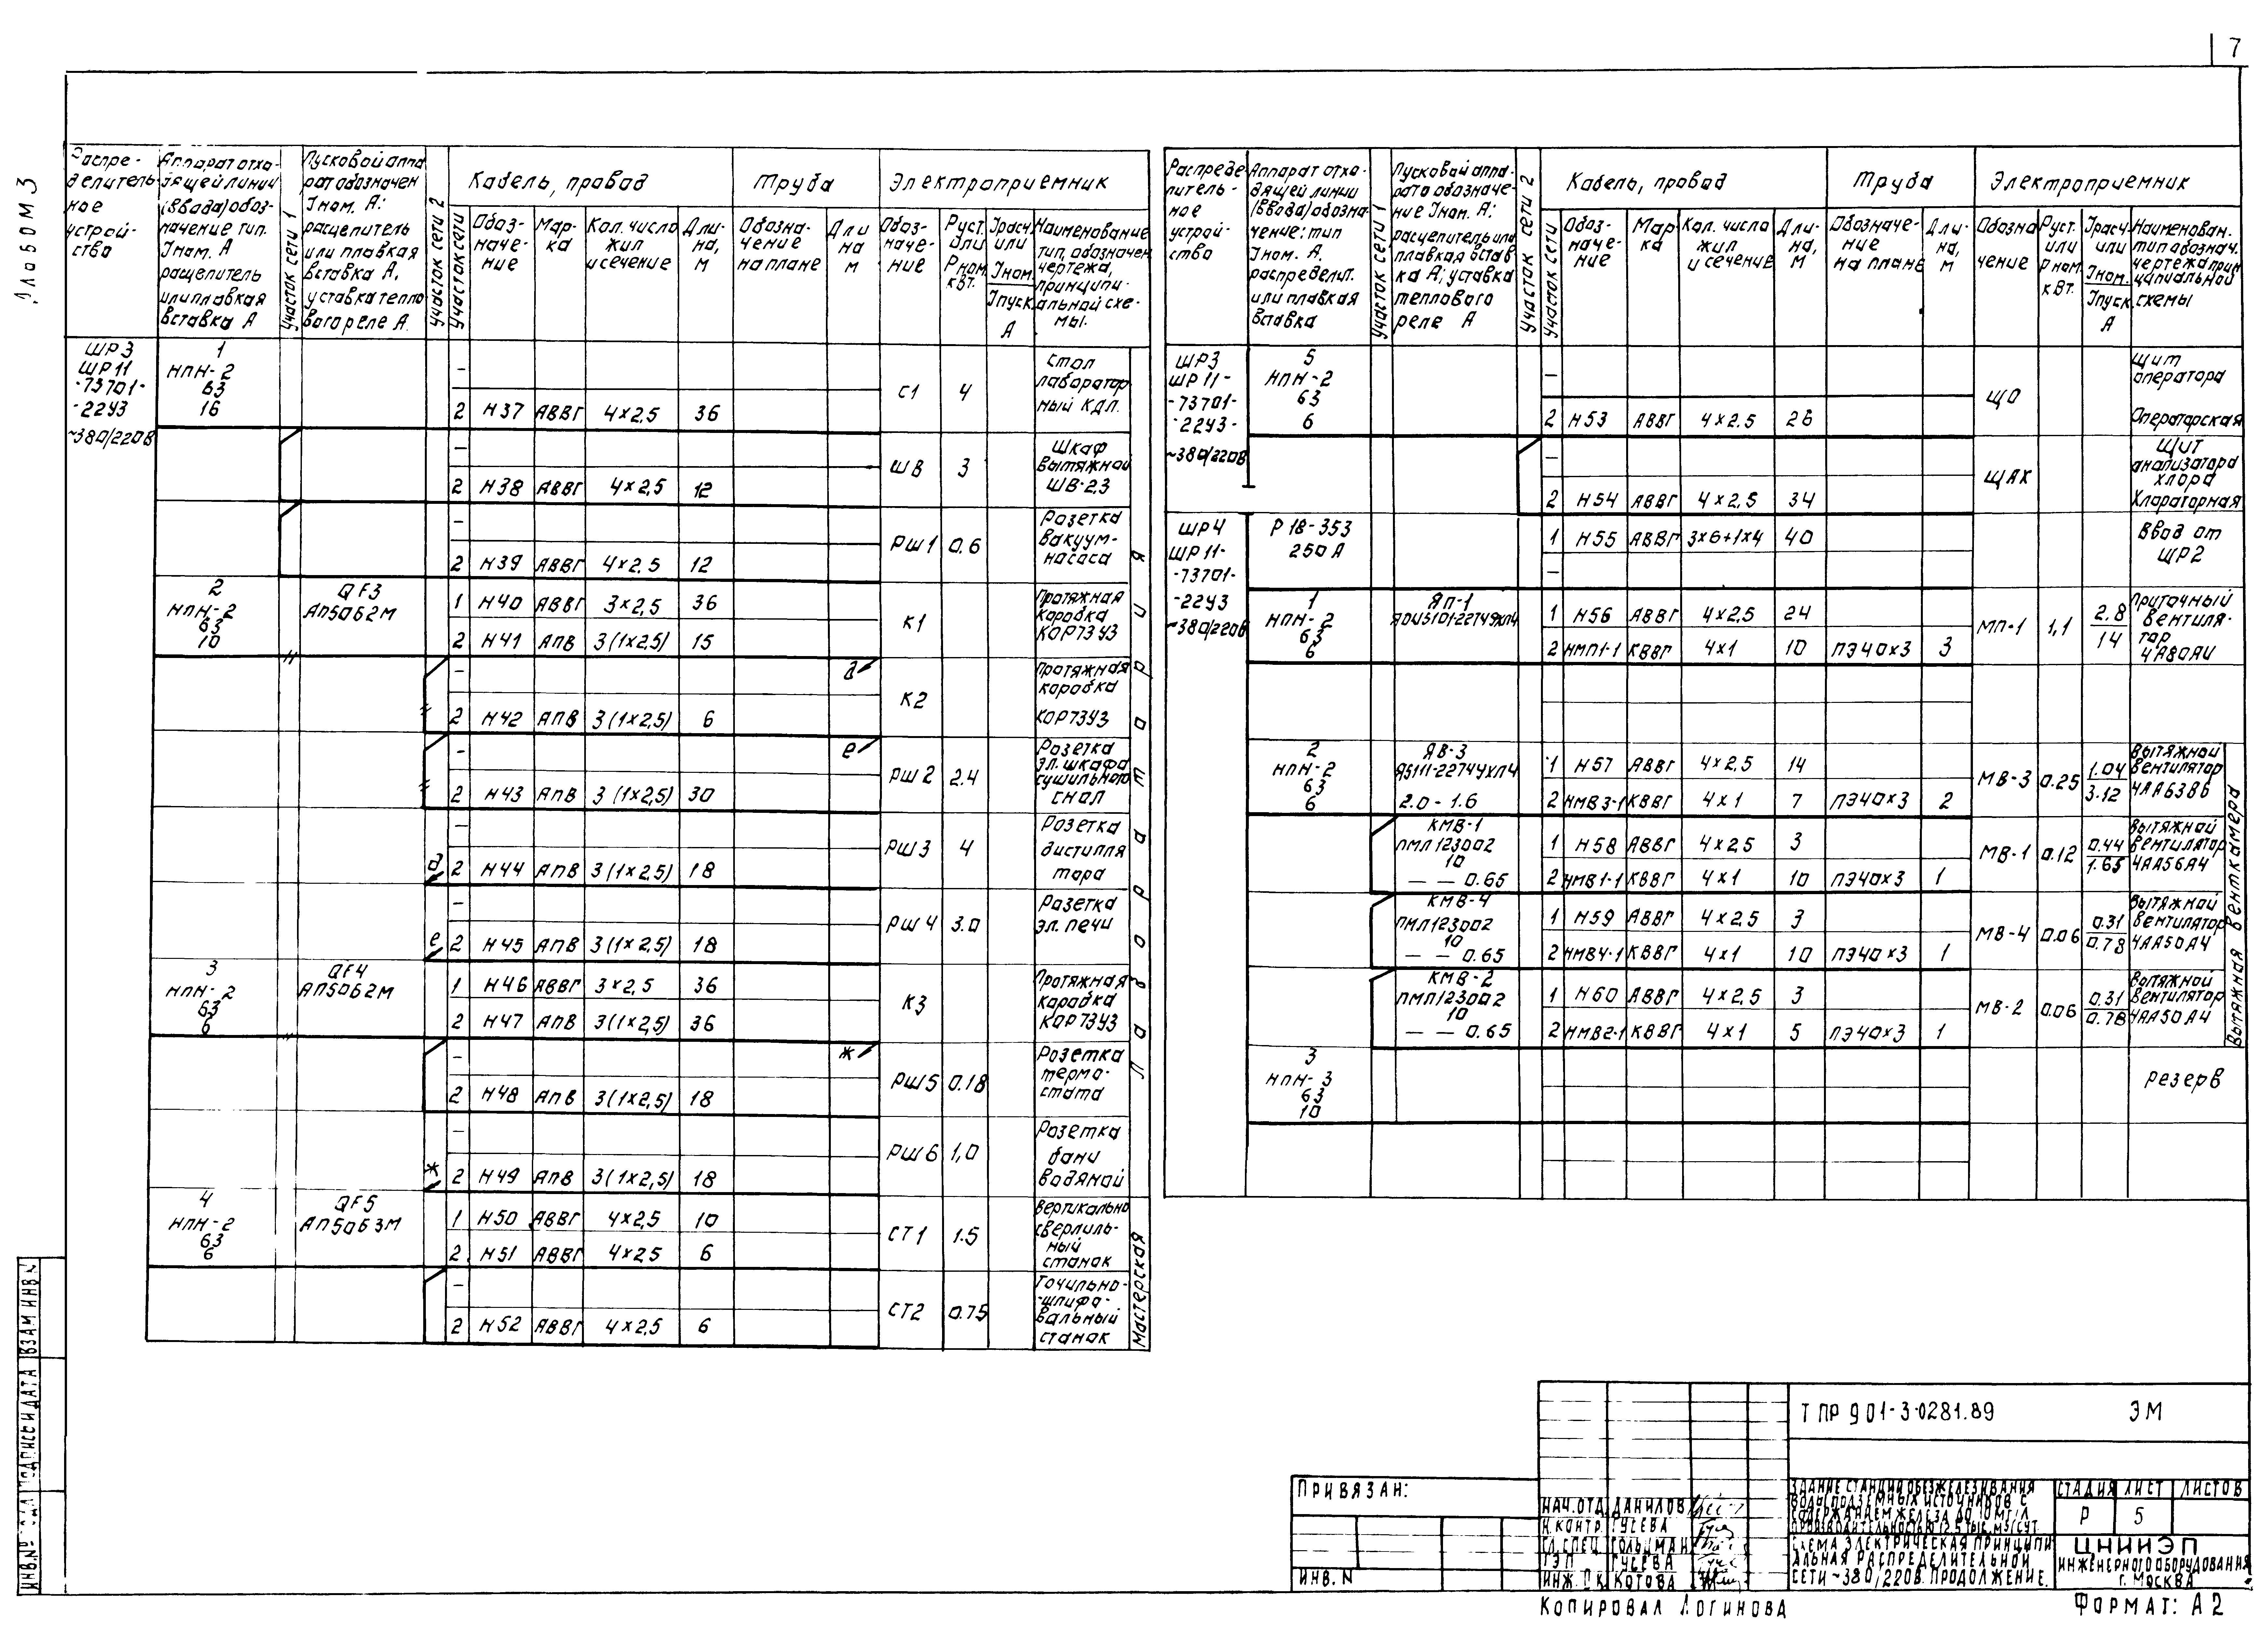 7
Альбом 3
Распре-
делитель
ное
устрой-
ство
Аппарат отхо-
дящей линии
(ввода) обоз-
начение тип.
Iном. А
расцепитель
или плавкая
вставка А
Участок сети 1
Пусковой аппа
рат обозначен
Iном. А:
расцепитель
или плавкая
вставка А,
уставка тепло
вого реле А.
Участок сети 2
Участок сети
Кабель, провод
Обоз-
наче-
ние
Мар-
ка
Кол. число
жил
и сечение
Дли-
на,
м
Труба
Обозна-
чение
на плане
Дли
на
м
Электроприемник
Обоз-
наче-
ние
Руст.
или
Рном.
кВт.
Iрасч.
или
Iном.
Iпуск.
А
Наименование
тип, обозначен
чертежа,
принципи-
альной схе-
мы.
ШР3
ШР11
-73701-
-22У3
~380/220В
1
НПН-2
63
16
–
2 Н37 АВВГ 4×2,5 36
С1 4
Стол
лаборатор
ный КДЛ.
–
2 Н38 АВВГ 4×2,5 12
ШВ 3
Шкаф
вытяжной
ШВ-2,3
–
2 Н39 АВВГ 4×2,5 12
РШ1 0.6
Розетка
вакуум-
насоса
2
НПН-2
63
10
QF3
АП50Б2М
1 Н40 АВВГ 3×2,5 36
2 Н41 АПВ 3(1×2,5) 15
К1
Протяжная
коробка
КОР73У3
–
д
2 Н42 АПВ 3(1×2,5) 6
К2
Протяжная
коробка
КОР73У3
–
е
2 Н43 АПВ 3(1×2,5) 30
РШ2 2.4
Розетка
эл. шкафа
сушильного
СНОЛ
–
д 2 Н44 АПВ 3(1×2,5) 18
РШ3 4
Розетка
дистилля
тора
–
е 2 Н45 АПВ 3(1×2,5) 18
РШ4 3.0
Розетка
эл. печи
3
НПН-2
63
6
QF4
АП50Б2М
1 Н46 АВВГ 3×2,5 36
2 Н47 АПВ 3(1×2,5) 36
К3
Протяжная
коробка
КОР73У3
–
ж
2 Н48 АПВ 3(1×2,5) 18
РШ5 0.18
Розетка
термо-
стата
–
ж 2 Н49 АПВ 3(1×2,5) 18
РШ6 1,0
Розетка
бани
водяной
Лаборатория
4
НПН-2
63
6
QF5
АП50Б3М
1 Н50 АВВГ 4×2,5 10
2 Н51 АВВГ 4×2,5 6
СТ1 1.5
Вертикально
сверлиль-
ный
станок
–
2 Н52 АВВГ 4×2,5 6
СТ2 0.75
Точильно-
-шлифо-
вальный
станок
Мастерская
Распреде
литель-
ное
устрой-
ство
Аппарат отхо-
дящей линии
(ввода) обозна-
чение: тип
Iном. А.
распределит.
или плавкая
вставка
Участок сети 1
Пусковой аппа-
рата обозначе-
ние Iном. А;
расцепитель или
плавкая встав
ка А; уставка
теплового
реле А
Участок сети 2
Участок сети
Кабель, провод
Обоз-
наче-
ние
Мар
ка
Кол. число
жил
и сечение
Дли-
на,
м
Труба
Обозначе-
ние
на плане
Дли-
на,
м
Электроприемник
Обозна
чение
Руст.
или
Рном.
кВт.
Iрасч.
или
Iном.
Iпуск.
А
Наименован.
тип обознач.
чертежа прин
ципиальной
схемы
ШР3
ШР11-
-73701-
-22У3-
~380/220В
5
НПН-2
63
6
–
2 Н53 АВВГ 4×2.5 28
ЩО
Щит
оператора
Операторская
–
2 Н54 АВВГ 4×2,5 34
ЩАХ
Щит
анализатора
хлора
Хлораторная
ШР4
ШР11-
-73701-
-22У3
~380/220В
Р18-353
250А
1 Н55 АВВГ 3×6+1×4 40
–
Ввод от
ШР2
1
НПН-2
63
6
ЯП-1
ЯОУ5101-2274УХЛ4
1 Н56 АВВГ 4×2,5 24
2 НМП1-1 КВВГ 4×1 10 ПЭ40×3 3
МП-1 1,1 2.8
14
Приточный
вентиля-
тор
4А80А4
2
НПН-2
63
6
ЯВ-3
Я5111-2274УХЛ4
2.0-1.6
1 Н57 АВВГ 4×2,5 14
2 НМВ3-1 КВВГ 4×1 7 ПЭ40×3 2
МВ-3 0.25 1.04
3.12
Вытяжной
вентилятор
4АА63В6
КМВ-1
ПМЛ123002
10
— — 0.65
1 Н58 АВВГ 4×2,5 3
2 НМВ1-1 КВВГ 4×1 10 ПЭ40×3 1
МВ-1 0.12 0.44
1.65
Вытяжной
вентилятор
4АА56А4
КМВ-4
ПМЛ123002
10
— — 0.65
1 Н59 АВВГ 4×2,5 3
2 НМВ4-1 КВВГ 4×1 10 ПЭ40×3 1
МВ-4 0.06 0.31
0.78
Вытяжной
вентилятор
4АА50А4
КМВ-2
ПМЛ123002
10
— — 0.65
1 Н60 АВВГ 4×2,5 3
2 НМВ2-1 КВВГ 4×1 5 ПЭ40×3 1
МВ-2 0.06 0.31
0.78
Вытяжной
вентилятор
4АА50А4
Вытяжная венткамера
3
НПН-3
63
10
Резерв
ТПР 901-3-0281.89 ЭМ
ПРИВЯЗАН:
ИНВ. N
НАЧ.ОТД ДАНИЛОВ
Н.КОНТР. ГУСЕВА
ГЛ.СПЕЦ ГОЛЬЦМАН
ГЭП ГУСЕВА
ИНЖ. КОТОВА
ЗДАНИЕ СТАНЦИИ ОБЕЗЖЕЛЕЗИВАНИЯ
ВОДЫ ПОДЗЕМНЫХ ИСТОЧНИКОВ С
СОДЕРЖАНИЕМ ЖЕЛЕЗА ДО 10 МГ/Л
ПРОИЗВОДИТЕЛЬНОСТЬЮ 12,5 ТЫС. М3/СУТ
СХЕМА ЭЛЕКТРИЧЕСКАЯ ПРИНЦИПИ
АЛЬНАЯ РАСПРЕДЕЛИТЕЛЬНОЙ
СЕТИ ~380/220В. ПРОДОЛЖЕНИЕ.
СТАДИЯ ЛИСТ ЛИСТОВ
Р 5
ЦНИИЭП
ИНЖЕНЕРНОГО ОБОРУДОВАНИЯ
Г. МОСКВА
КОПИРОВАЛ ЛОГИНОВА
ФОРМАТ: А2
ИНВ.№ ПОДЛ ПОДПИСЬ И ДАТА ВЗАМ ИНВ.N